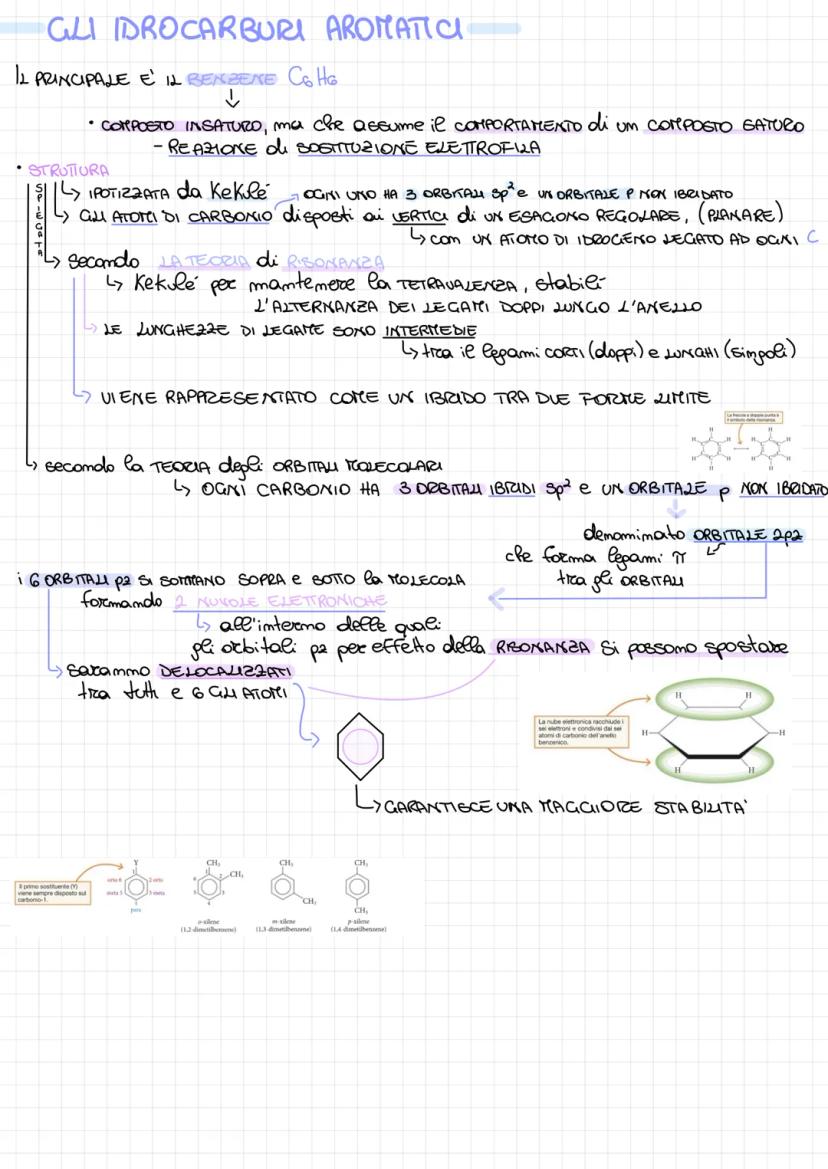 GLI IDROCARBURI AROMATICI
IL PRINCIPALE E' IL BENZENE C6H6
• COMPOSTO INSATURO, ma che assume il COMPORTAMENTO di un COMPOSTO SATURO
- REAZIONE di SOSTITUZIONE ELETTROFILA
• STRUTTURA
SPIEGATA
↳ IPOTIZZATA da Kekulé
→ OGNI UNO HA 3 ORBITALI sp² e UN ORBITALE P NON IBRIDATO
↳ GLI ATOMI DI CARBONIO disposti ai VERTICI di UN ESAGONO REGOLARE, (PLANARE)
↳ con UN ATOMO DI IDROGENO LEGATO AD OGNI C
↳ Secondo LA TEORIA di RISONANZA
↳ Kekulé per mantenere la TETRAVALENZA, stabilì
L'ALTERNANZA DEI LEGAMI DOPPI LUNGO L'ANELLO
↳ LE LUNGHEZZE DI LEGAME SONO INTERMEDIE
↳ tra il legami CORTI (doppi) e LUNGHI (singoli)
↳ VIENE RAPPRESENTATO COME UN IBRIDO TRA DUE FORME LIMITE
La freccia a doppia punta è
il simbolo della risonanza.
H H H H H H
H H H H H H
↳ secondo la TEORIA degli ORBITALI MOLECOLARI
↳ OGNI CARBONIO HA 3 ORBITALI IBRIDI sp² e UN ORBITALE p NON IBRIDATO
denominato ORBITALE 2pz
che forma legami π
tra gli ORBITALI
i 6 ORBITALI pz SI SOMMANO SOPRA e SOTTO la MOLECOLA
formando 2 NUVOLE ELETTRONICHE
↳ all'interno delle quali
gli orbitali pz per effetto della RISONANZA Si possono spostare
↳ Saranno DELOCALIZZATI
tra tutti e 6 GLI ATOMI
La nube elettronica racchiude i
sei elettroni π condivisi dai sei
atomi di carbonio dell'anello
benzenico.
H H
H H
H H
↳ GARANTISCE UNA MAGGIORE STABILITA'
Il primo sostituente (Y)
viene sempre disposto sul
carbonio-1.
Y
1
orto 6 2 orto
meta 5 3 meta
4
para
CH₃
1 2 CH₃
6 3
5
4
o-xilene
(1,2-dimetilbenzene)
CH₃
CH₃
m-xilene
(1,3-dimetilbenzene)
CH₃
CH₃
p-xilene
(1,4-dimetilbenzene)